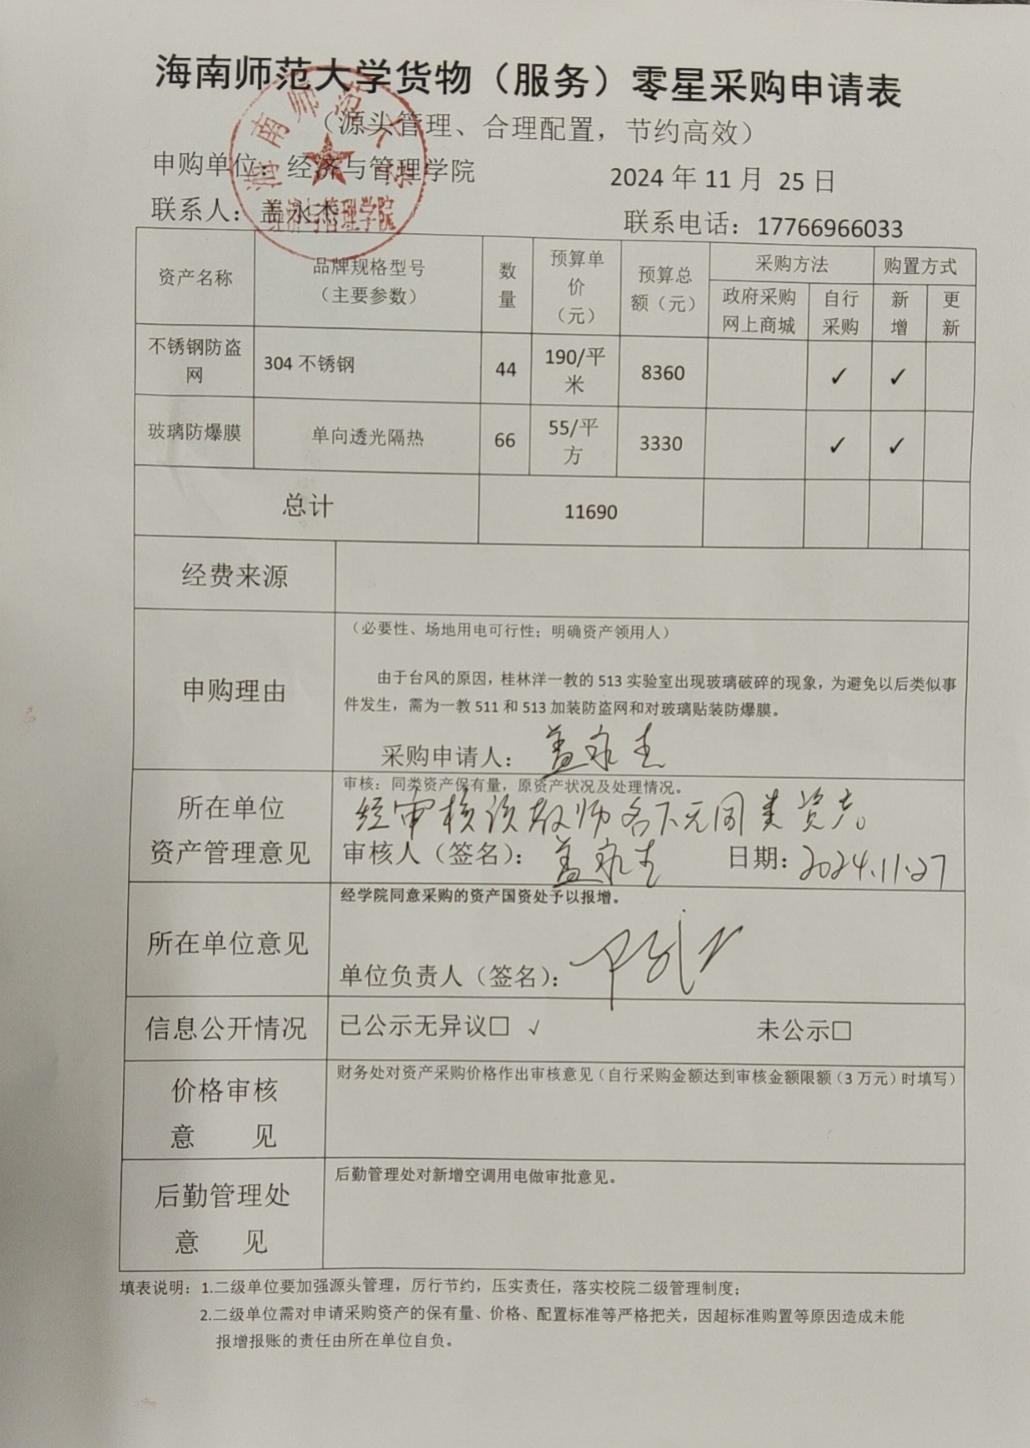 海南师范大学货物（服务）零星采购申请表
（源头管理、合理配置，节约高效）
申购单位：经济与管理学院 2024 年 11 月 25 日
联系人：盖永杰 联系电话：17766966033
海南师范大学
经济与管理学院
资产名称 品牌规格型号（主要参数） 数量 预算单价（元） 预算总额（元） 采购方法 购置方式
政府采购网上商城 自行采购 新增 更新
不锈钢防盗网 304 不锈钢 44 190/平米 8360 ✓ ✓
玻璃防爆膜 单向透光隔热 66 55/平方 3330 ✓ ✓
总计 11690
经费来源
申购理由
（必要性、场地用电可行性；明确资产领用人）
由于台风的原因，桂林洋一教的 513 实验室出现玻璃破碎的现象，为避免以后类似事
件发生，需为一教 511 和 513 加装防盗网和对玻璃贴装防爆膜。
采购申请人：盖永杰
所在单位
资产管理意见
审核：同类资产保有量，原资产状况及处理情况。
经审核该教师名下无同类资产。
审核人（签名）：盖永杰 日期：2024.11.27
所在单位意见
经学院同意采购的资产国资处予以报增。
单位负责人（签名）：
信息公开情况 已公示无异议□ √ 未公示□
价格审核
意 见
财务处对资产采购价格作出审核意见（自行采购金额达到审核金额限额（3 万元）时填写）
后勤管理处
意 见
后勤管理处对新增空调用电做审批意见。
填表说明：1.二级单位要加强源头管理，厉行节约，压实责任，落实校院二级管理制度；
2.二级单位需对申请采购资产的保有量、价格、配置标准等严格把关，因超标准购置等原因造成未能
报增报账的责任由所在单位自负。